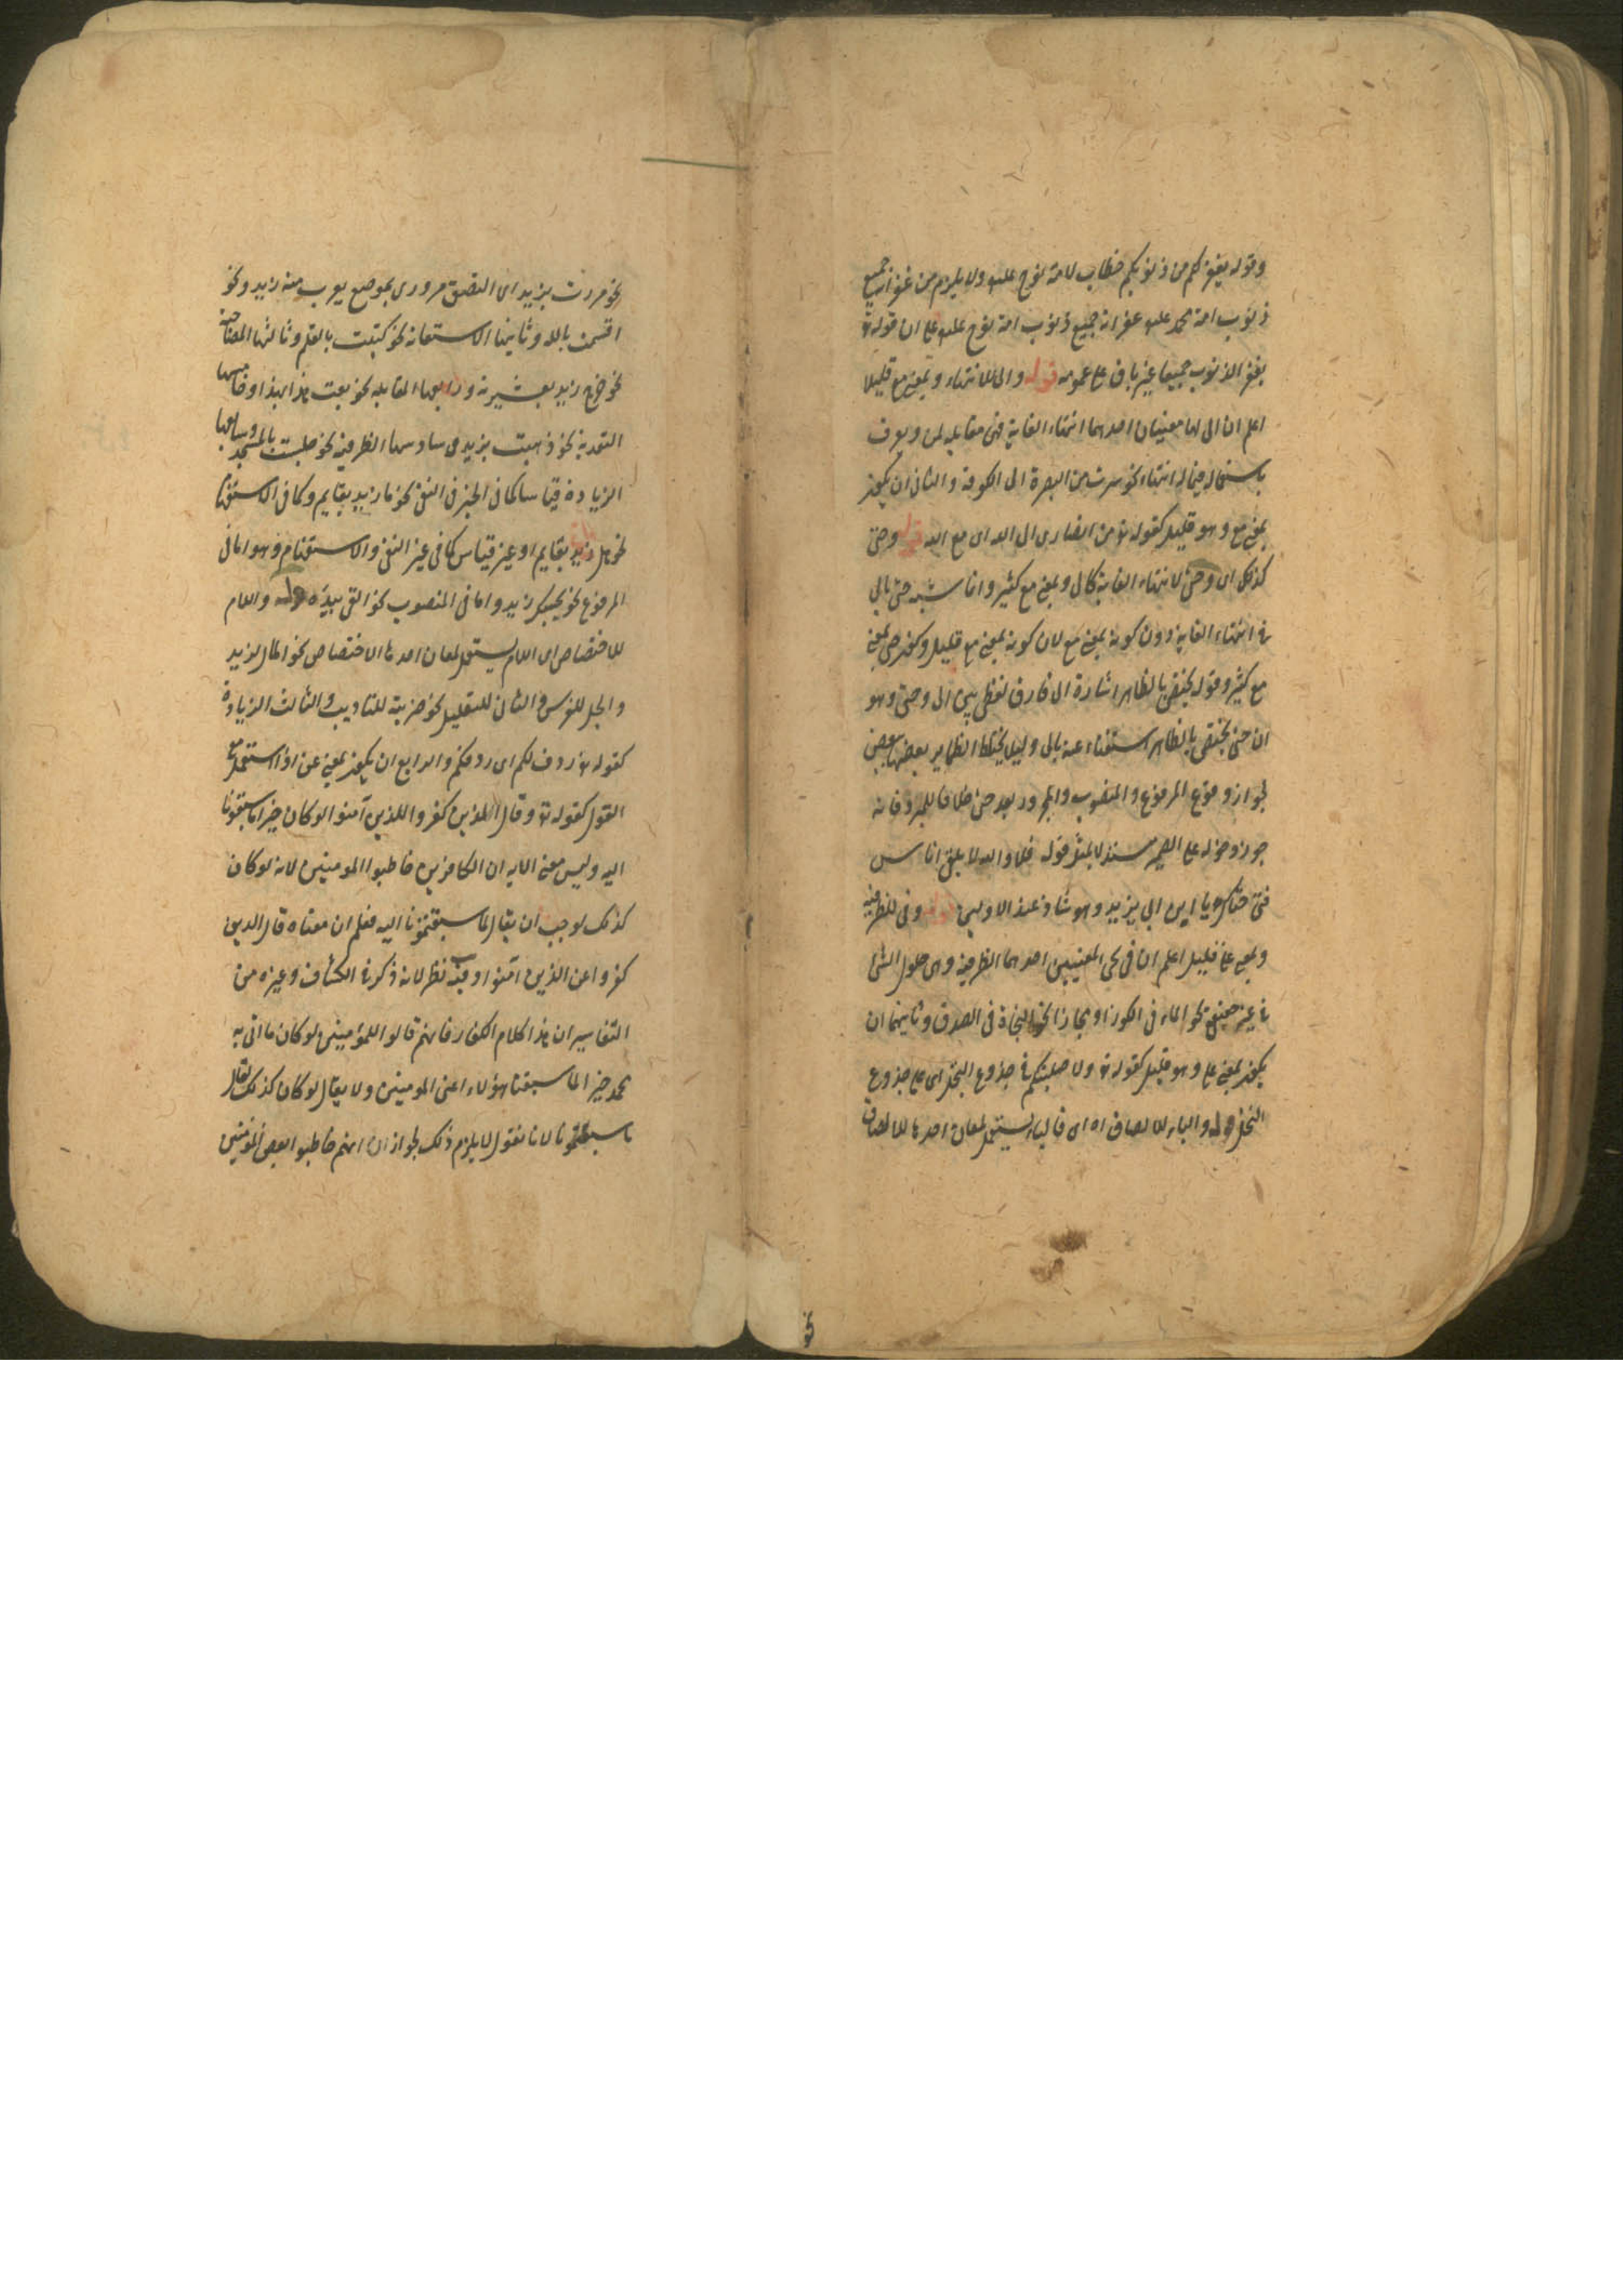 وقوله يغفر لكم من ذنوبكم خطاب لامة نوح عليه ولا يلزم من غفران جميع
ذنوب امة محمد عليه غفران جميع ذنوب امة نوح عليه على ان قوله تع
يغفر الذنوب جميعا غير باق على عمومه قوله والى للانتهاء وبمعنى مع قليلا
اعلم ان الى لها معنيان احدهما انتهاء الغاية فهى مقابله لمن ويعرف
باستعماله فيما له انتهاء نحو سرت من البصرة الى الكوفة والثانى ان يكون
بمعنى مع وهو قليل كقوله تع من انصارى الى الله اى مع الله قوله وحتى
كذلك اى وحتى لانتهاء الغاية كالى وبمعنى مع كثير وانما شبه حتى بالى
فى انتهاء الغاية دون كونه بمعنى مع لان كونه بمعنى مع قليل وكون حتى بمعنى
مع كثير وقوله يختص بالظاهر اشارة الى فارق لفظى بين الى وحتى وهو
ان حتى يختص بالظاهر استغناء عنه بالى وليلا يختلط الظماير بعضها ببعض
لجواز وقوع المرفوع والمنصوب والمجرور بعد حتى خلافا للمبرد فانه
جوز دخوله على المضمر مستدلا بمثل قوله فلا والله لا يلقى اناس
فتى حتاك يا ابن ابى يزيد وهو شاذ عند الاولين قوله وفى للظرفية
وبمعنى على قليل اعلم ان فى يجى لمعنيين احدهما الظرفية وهى حلول الشى
فى غيره حقيقة نحو الماء فى الكوز او مجازا نحو النجاة فى الصدق وثانيهما ان
يكون بمعنى على وهو قليل كقوله تع ولاصلبنكم فى جذوع النخل اى على جذوع
النخل قوله والباء للالصاق اه اى فالباء يستعمل لمعان احدها للالصاق
نحو مررت بزيد اى التصق مرورى بموضع يقرب منه زيد ونحو
اقسمت بالله وثانيها الاستعانة نحو كتبت بالقلم وثالثها المصاحبة
نحو خرج زيد بعشيرته ورابعها المقابله نحو بعت هذا بهذا وخامسها
التعدية نحو ذهبت بزيد وسادسها الظرفية نحو جلست بالمسجد وسابعها
الزيادة قياسا كما فى الخبر فى النفى نحو ما زيد بقايم وكما فى الاستفهام
نحو هل زيد بقايم او غير قياس كما فى غير النفى والاستفهام وهو اما فى
المرفوع نحو بحسبك زيد واما فى المنصوب نحو القى بيده قوله واللام
للاختصاص اى اللام يستعمل لمعان احدها الاختصاص نحو المال لزيد
والجل للفرس والثانى للتعليل نحو ضربته للتاديب والثالث الزيادة
كقوله تع ردف لكم اى ردفكم والرابع ان يكون بمعنى عن اذا استعمل مع
القول كقوله تع وقال الذين كفروا للذين آمنوا لو كان خيرا ما سبقونا
اليه وليس معنى الايه ان الكافرين خاطبوا المومنين لانه لو كان
كذلك لوجب ان يقال ما سبقتمونا اليه فعلم ان معناه قال الذين
كفروا عن الذين آمنوا وفيه نظر لانه ذكر فى الكشاف وغيره من
التفاسير ان هذا كلام الكفار فانهم قالوا للمؤمنين لو كان ما اتى به
محمد خيرا لما سبقنا هؤلاء اعنى المومنين ولا يقال لو كان كذلك لقال
ما سبقتمونا لانا نقول لا يلزم ذلك لجواز انهم خاطبوا بعض المؤمنين
نحو